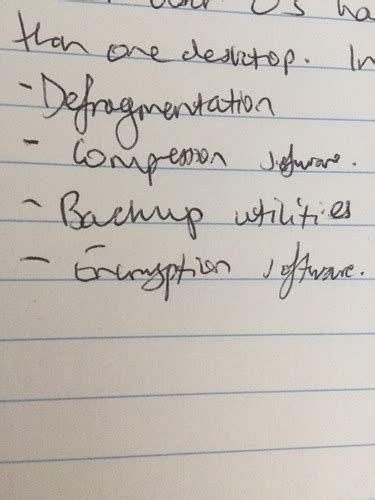 OS ha
than one desktop. In
- Defragmentation
- Compression software.
- Backup utilities
- Encryption software.